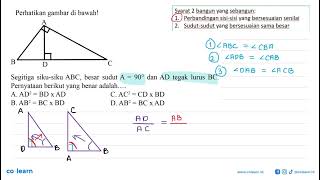 Perhatikan gambar di bawah!
A
B
D
C
Segitiga siku-siku ABC, besar sudut A = 90° dan AD tegak lurus BC.
Pernyataan berikut yang benar adalah....
A. AD² = BD x AD
C. AC² = CD x BD
B. AB² = BC x BD
D. AB² = BC x AD
Syarat 2 bangun yang sebangun:
1. Perbandingan sisi-sisi yang bersesuaian senilai
2. Sudut-sudut yang bersesuaian sama besar
① ∠ABC = ∠CBA
② ∠ADB =
③ ∠DAB = ∠ACB
A
D
B
C
A
B
AD = AB
AC
co learn
www.colearn.id